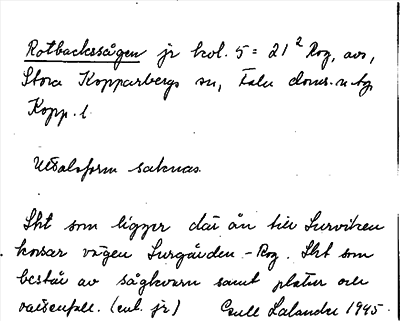 Rotbackssågen jr kol. 5 = 21² Rog, avs,
Stora Kopparbergs sn, Falu doms. o tg,
Kopp. l.
Uttalsform saknas.
Skt som ligger där ån till Surviken
korsar vägen Surgården - Rog. Skt som
består av sågkvarn samt platser och
vattenfall. (enl. jr) Lalander 1945.